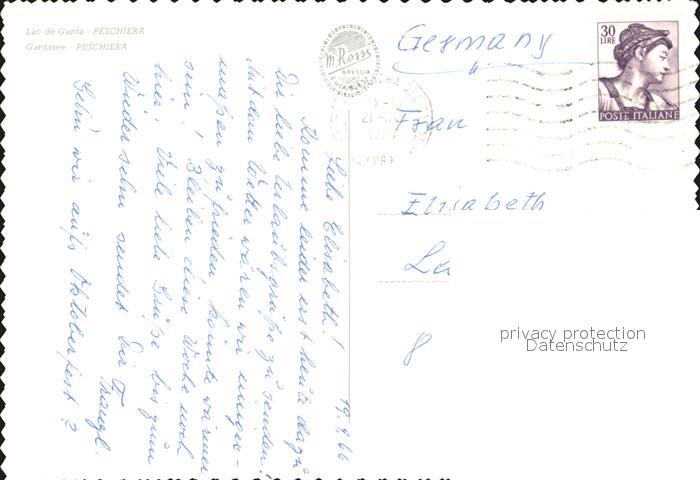 Lac de Garda - PESCHIERA
Gardasee - PESCHIERA
m. Rossi
BRESCIA
30
LIRE
POSTE ITALIANE
Germany
Frau
Elisabeth
La
8
privacy protection
Datenschutz
19.9.66
Liebe Elisabeth!
Komme leider erst heute dazu
Dir liebe Urlaubsgrüße zu senden.
Mit dem Wetter waren wir einiger-
maßen zufrieden, könnte wärmer
sein! Bleiben diese Woche noch
hier. Viele liebe Grüße bis zum
Wiedersehn sendet Dir
Gehn wir aufs Oktoberfest?